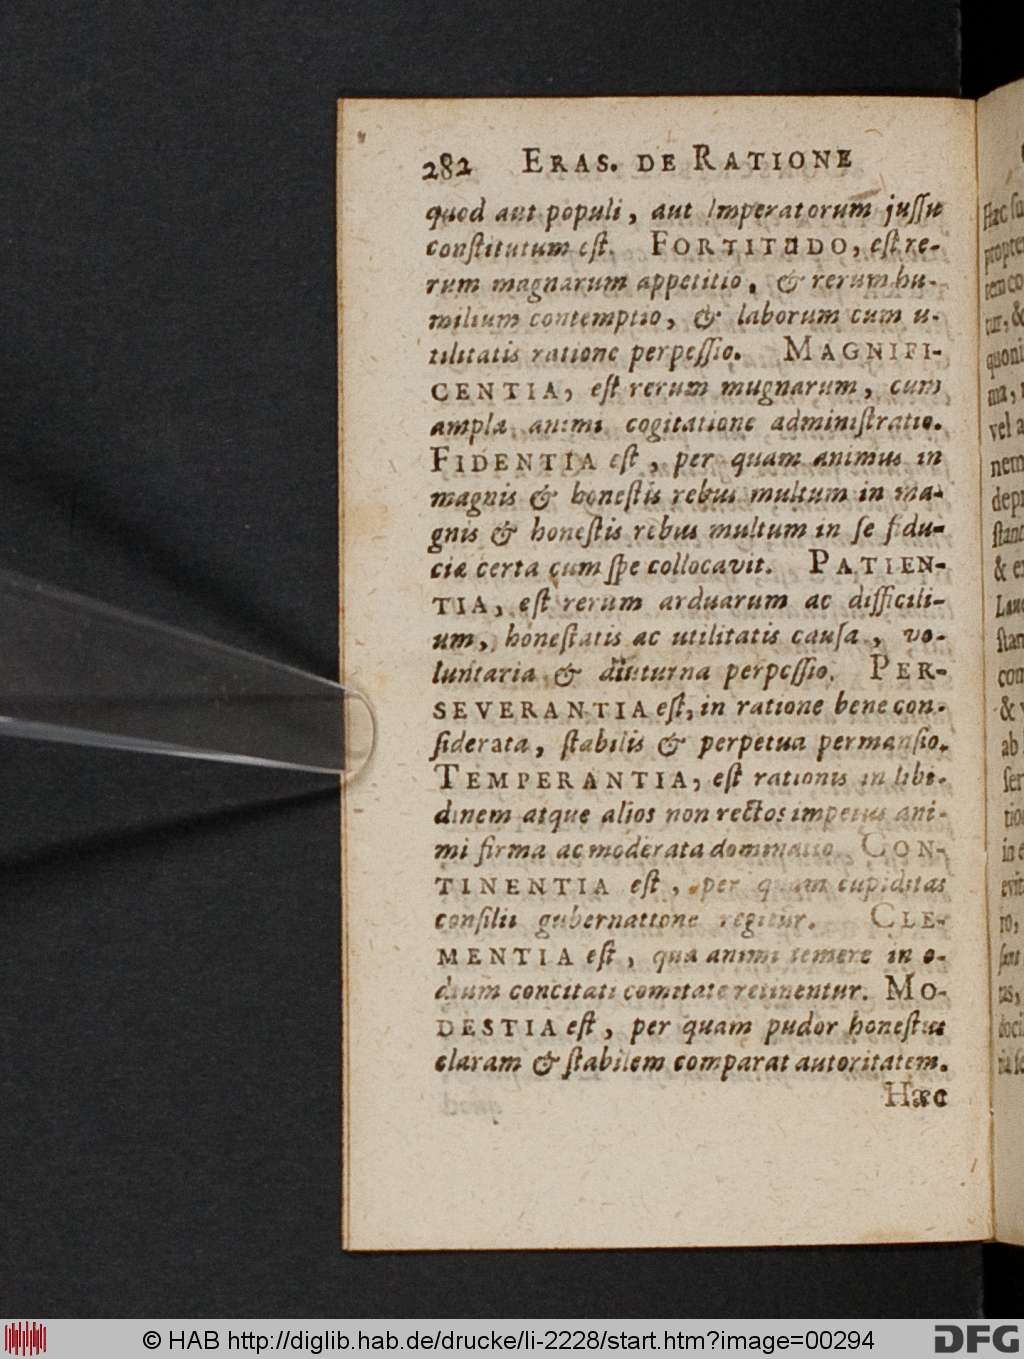 282 ERAS. DE RATIONE
quod aut populi, aut Imperatorum juſſu
conſtitutum eſt. FORTITUDO, eſt re-
rum magnarum appetitio, & rerum hu-
milium contemptio, & laborum cum u-
tilitatis ratione perpeſſio. MAGNIFI-
CENTIA, eſt rerum mugnarum, cum
ampla animi cogitatione adminiſtratio.
FIDENTIA eſt, per quam animus in
magnis & honeſtis rebus multum in ma-
gnis & honeſtis rebus multum in ſe fidu-
ciæ certa cum ſpe collocavit. PATIEN-
TIA, eſt rerum arduarum ac difficili-
um, honeſtatis ac utilitatis cauſa, vo-
luntaria & diuturna perpeſſio. PER-
SEVERANTIA eſt, in ratione bene con-
ſiderata, ſtabilis & perpetua permanſio.
TEMPERANTIA, eſt rationis in libi-
dinem atque alios non rectos impetus ani-
mi firma ac moderata dominatio. CON-
TINENTIA eſt, per quam cupiditas
conſilii gubernatione regitur. CLE-
MENTIA eſt, qua animi temere in o-
dium concitati comitate retinentur. MO-
DESTIA eſt, per quam pudor honeſtus
claram & ſtabilem comparat autoritatem.
Hæc
Hæc
& 
vel a
nem
& 
& 
ab
in
© HAB http://diglib.hab.de/drucke/li-2228/start.htm?image=00294
DFG